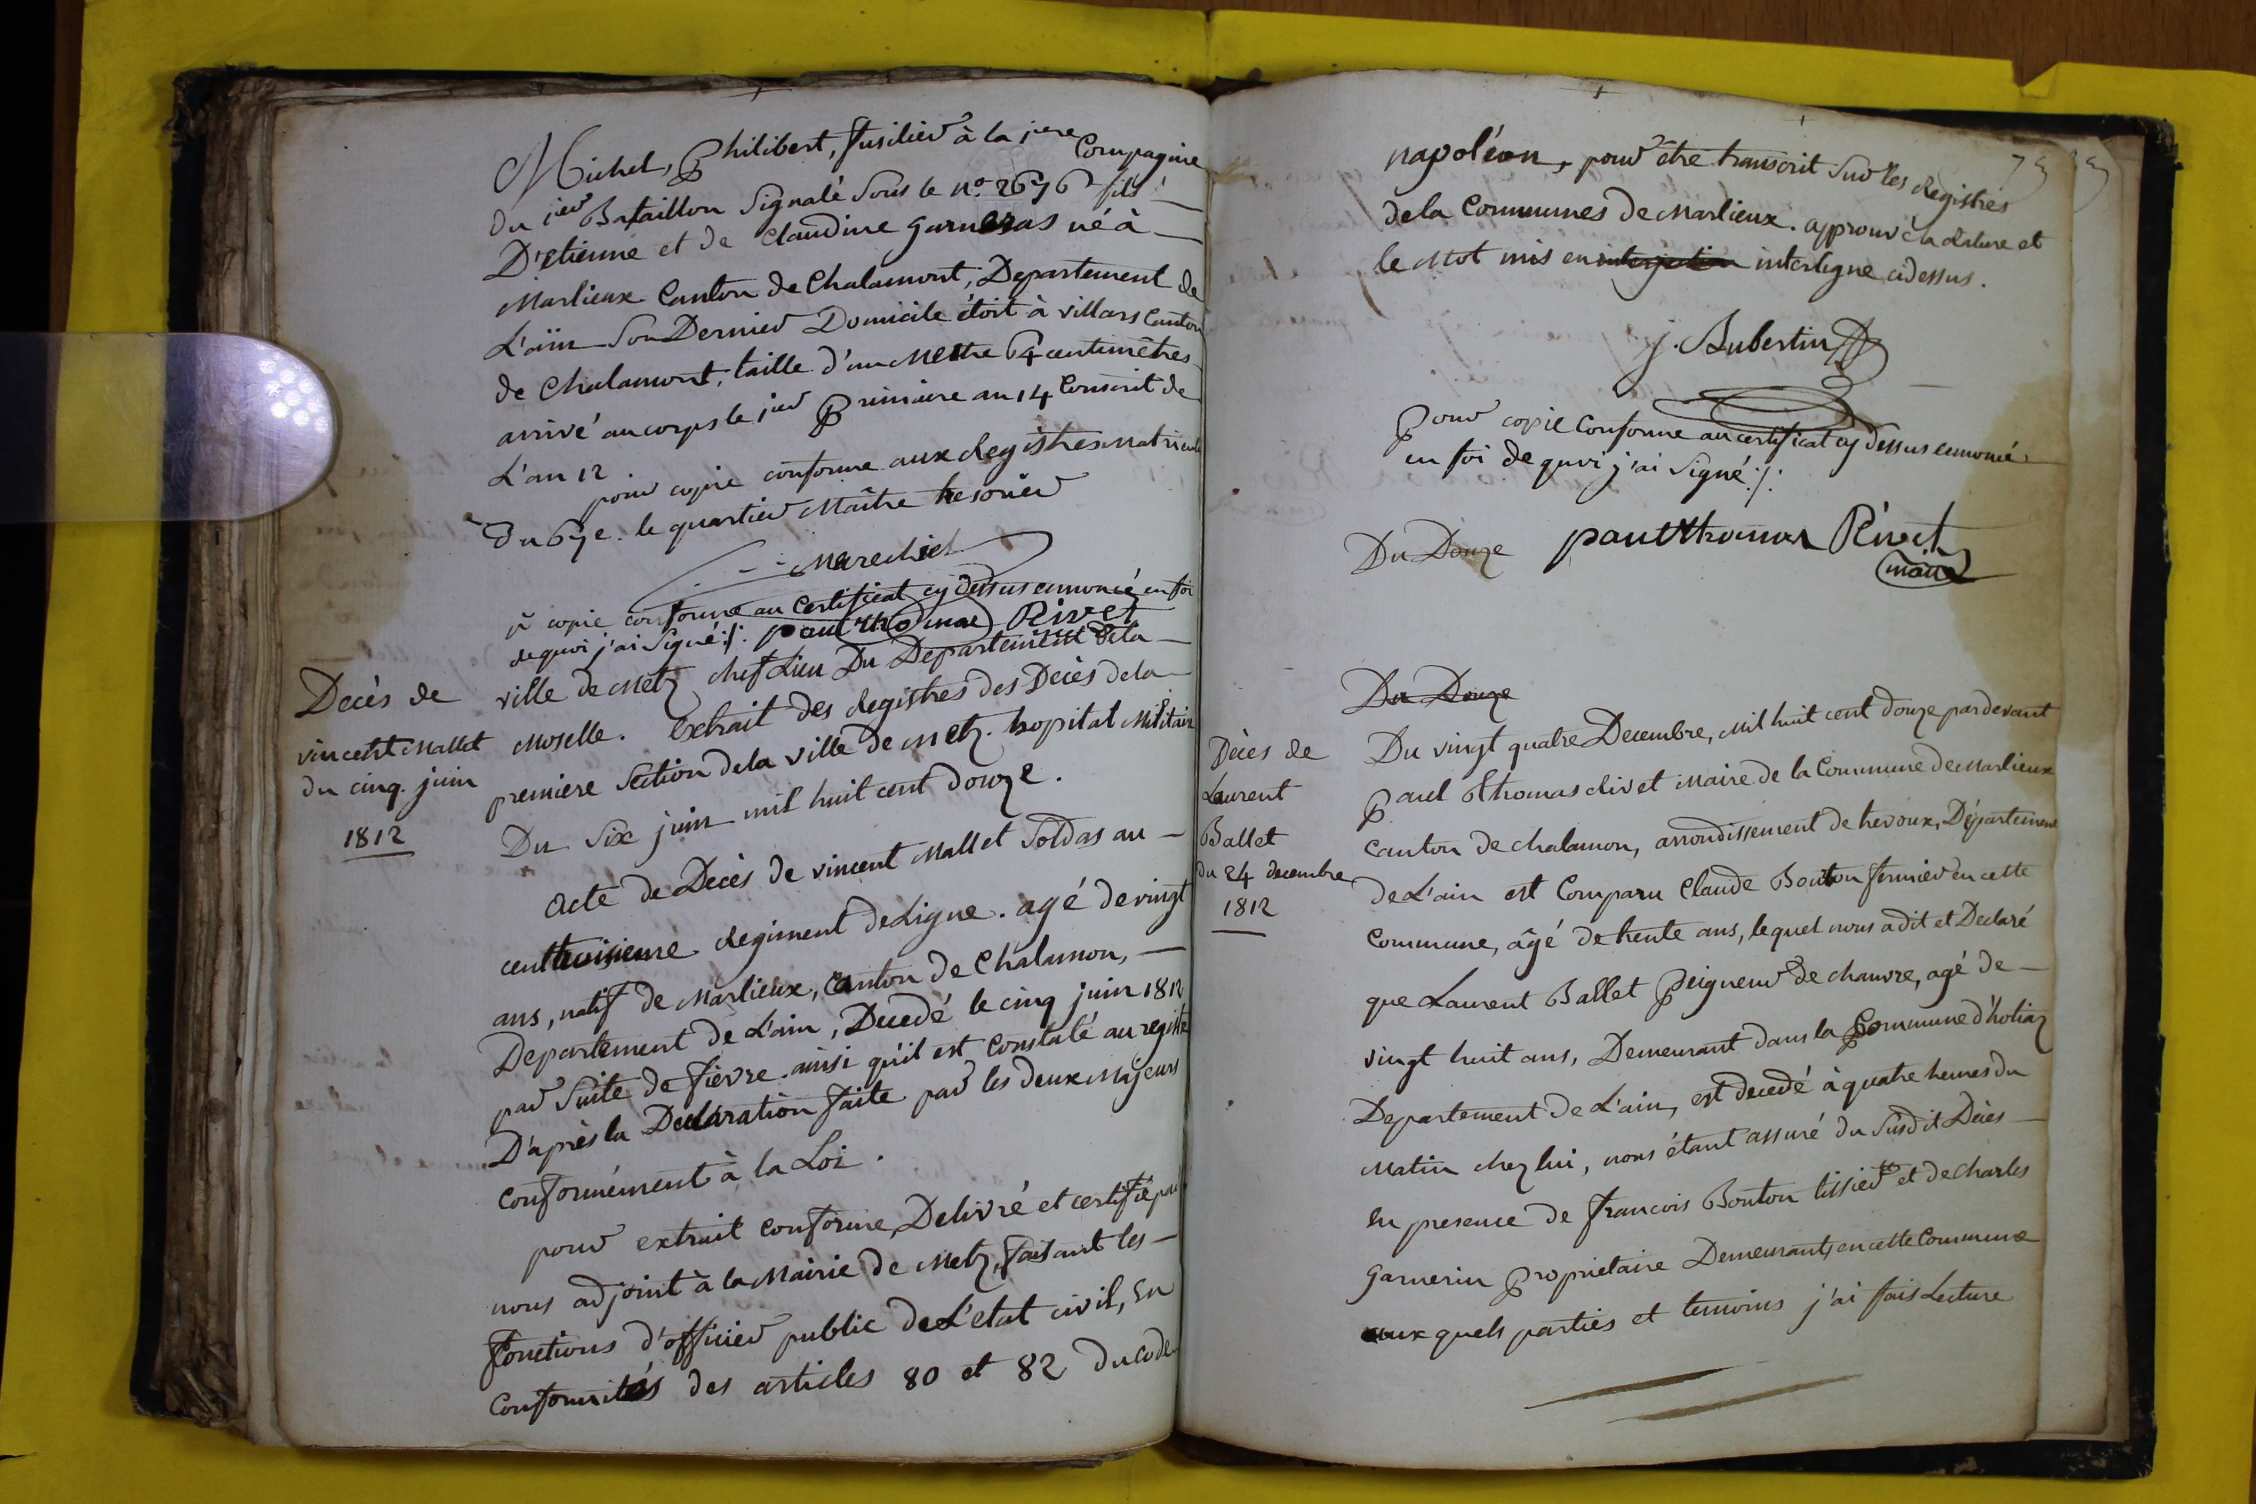 Michel, Philibert, fusilier à la 1ere Compagnie
Du 1er Bataillon Signalé sous le N.° 2676 fils
D'etienne et de Claudine garneras né à
Marlieux Canton de Chalamont, Departement de
L'ain Son Dernier Domicile étoit à villars Canton
de Chalamont, taille d'un Mettre 64 centimètres
arrivé au corps le 1er primaire an 14 Conscrit de
L'an 12
pour copie conforme aux Registres Matricule
Du 67e. le quartier Maître tresorier
Marechel
pr copie conforme au certificat cy dessus ennoncé en foi
de quoi j'ai signé ./. paul thomas Rivet
Decès de
vincent Mallet
du cinq. juin
1812
ville de Metz chef Lieu Du Departement de la
Moselle. Extrait des Registres des Decès de la
premiere Section de la ville de Metz. hopital Militaire
Du Six juin mil huit cent douze.
Acte de Decès de vincent Mallet Soldas au
cent troisieme Regiment de Ligne. agé de vingt
ans, natif de Marlieux, Canton de Chalamon,
Departement de L'ain, Decedé le cinq juin 1812
par Suite de fievre. ainsi qu'il est constaté au registre
D'après la Declaration faite par les deux Majeurs
conformément à la Loi.
pour extrait conforme, Delivré et certifié par
nous adjoint à la Mairie de Metz, faisant les
fonctions d'officier public de L'etat civil, En
Conformités des articles 80 et 82 Du code
napoléon, pour être transcrit Sur les Registres
de la Communes de Marlieux. approuvé la rature et
le Mot mis en interjection interligne cidessus.
j. Bubertin
pour copie conforme au certificat cy dessus ennoncé
en foi de quoi j'ai signé ./.
Du Douze paul thomas Rivet
maire
Du Douze
Décès de
Laurent
Ballet
du 24 decembre
1812
Du vingt quatre Decembre, mil huit cent douze pardevant
Paul thomas Rivet Maire de la Commune de Marlieux
canton de chalamon, arrondissement de trevoux, Département
de L'ain est Comparu Claude Bouton fermier en cette
Commune, âgé de trente ans, lequel nous a dit et Declaré
que Laurent Ballet Peigneur de chanvre, agé de
vingt huit ans, Demeurant dans la Commune d'hotiaz
Departement de L'ain, est decedé à quatre heures du
Matin chez lui, nous étant assuré du Susdit Décès
En presence de francois Bouton tissier et de charles
garnerin propriétaire Demeurants en cette Commune
aux quels parties et temoins j'ai fais Lecture